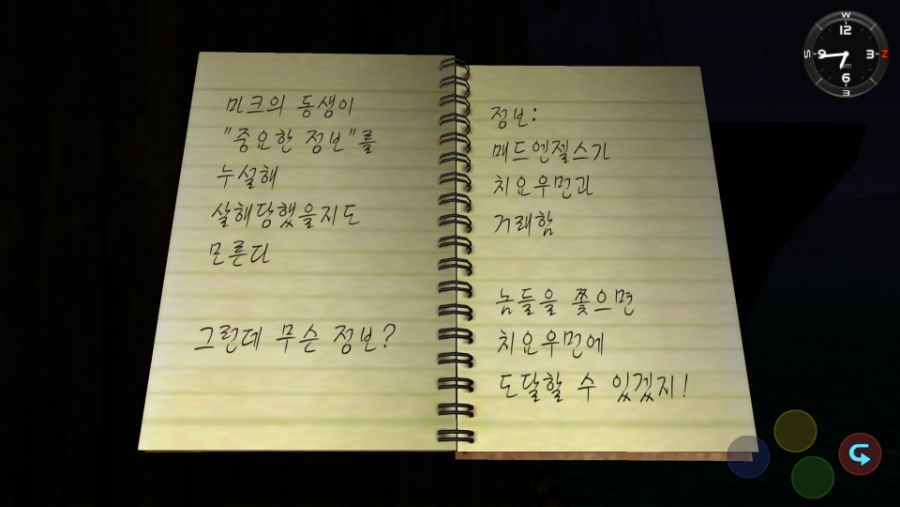 민크의 동생이
"중요한 정보"를
누설해
살해당했을지도
모른다
그런데 무슨 정보?
정보:
매드엔젤스가
치요우먼과
거래함
놈들을 쫓으면
치요우먼에
도달할 수 있겠지!
W
12
S
9
3
Z
6
E